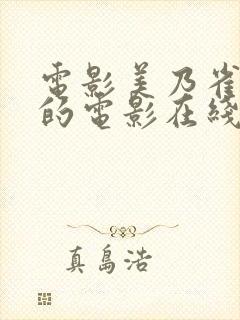 電影美乃雀
的電影在綫
真島浩